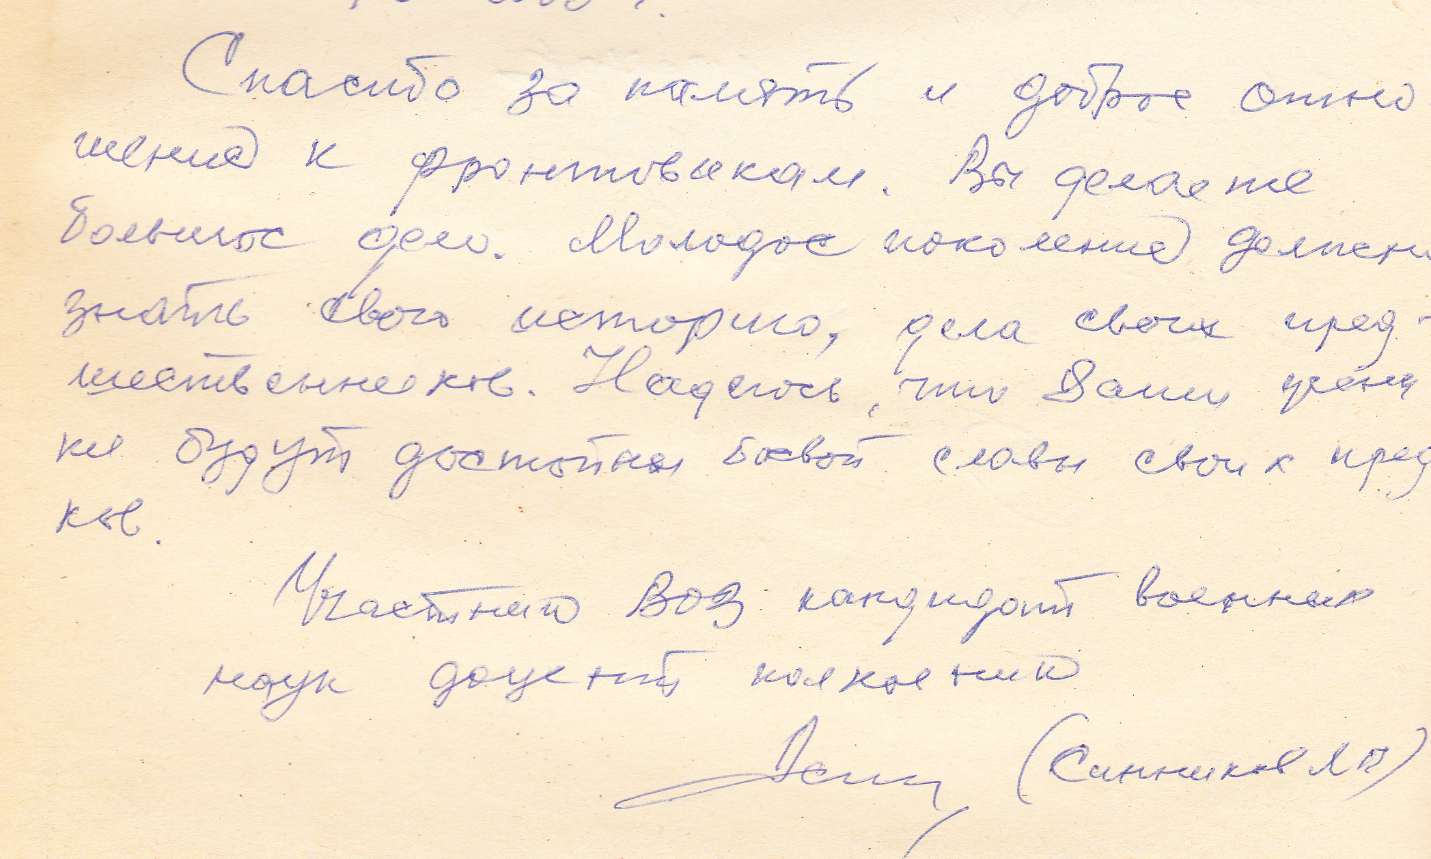 Спасибо за память и доброе отно
шение к фронтовикам. Вы делаете
большое дело. Молодое поколение должно
знать свою историю, дела своих пред-
шественников. Надеюсь, что Ваши учени
ки будут достойны боевой славы своих пред
ков.
Участник ВОВ кандидат военных
наук доцент полковник
(Синников Л П)